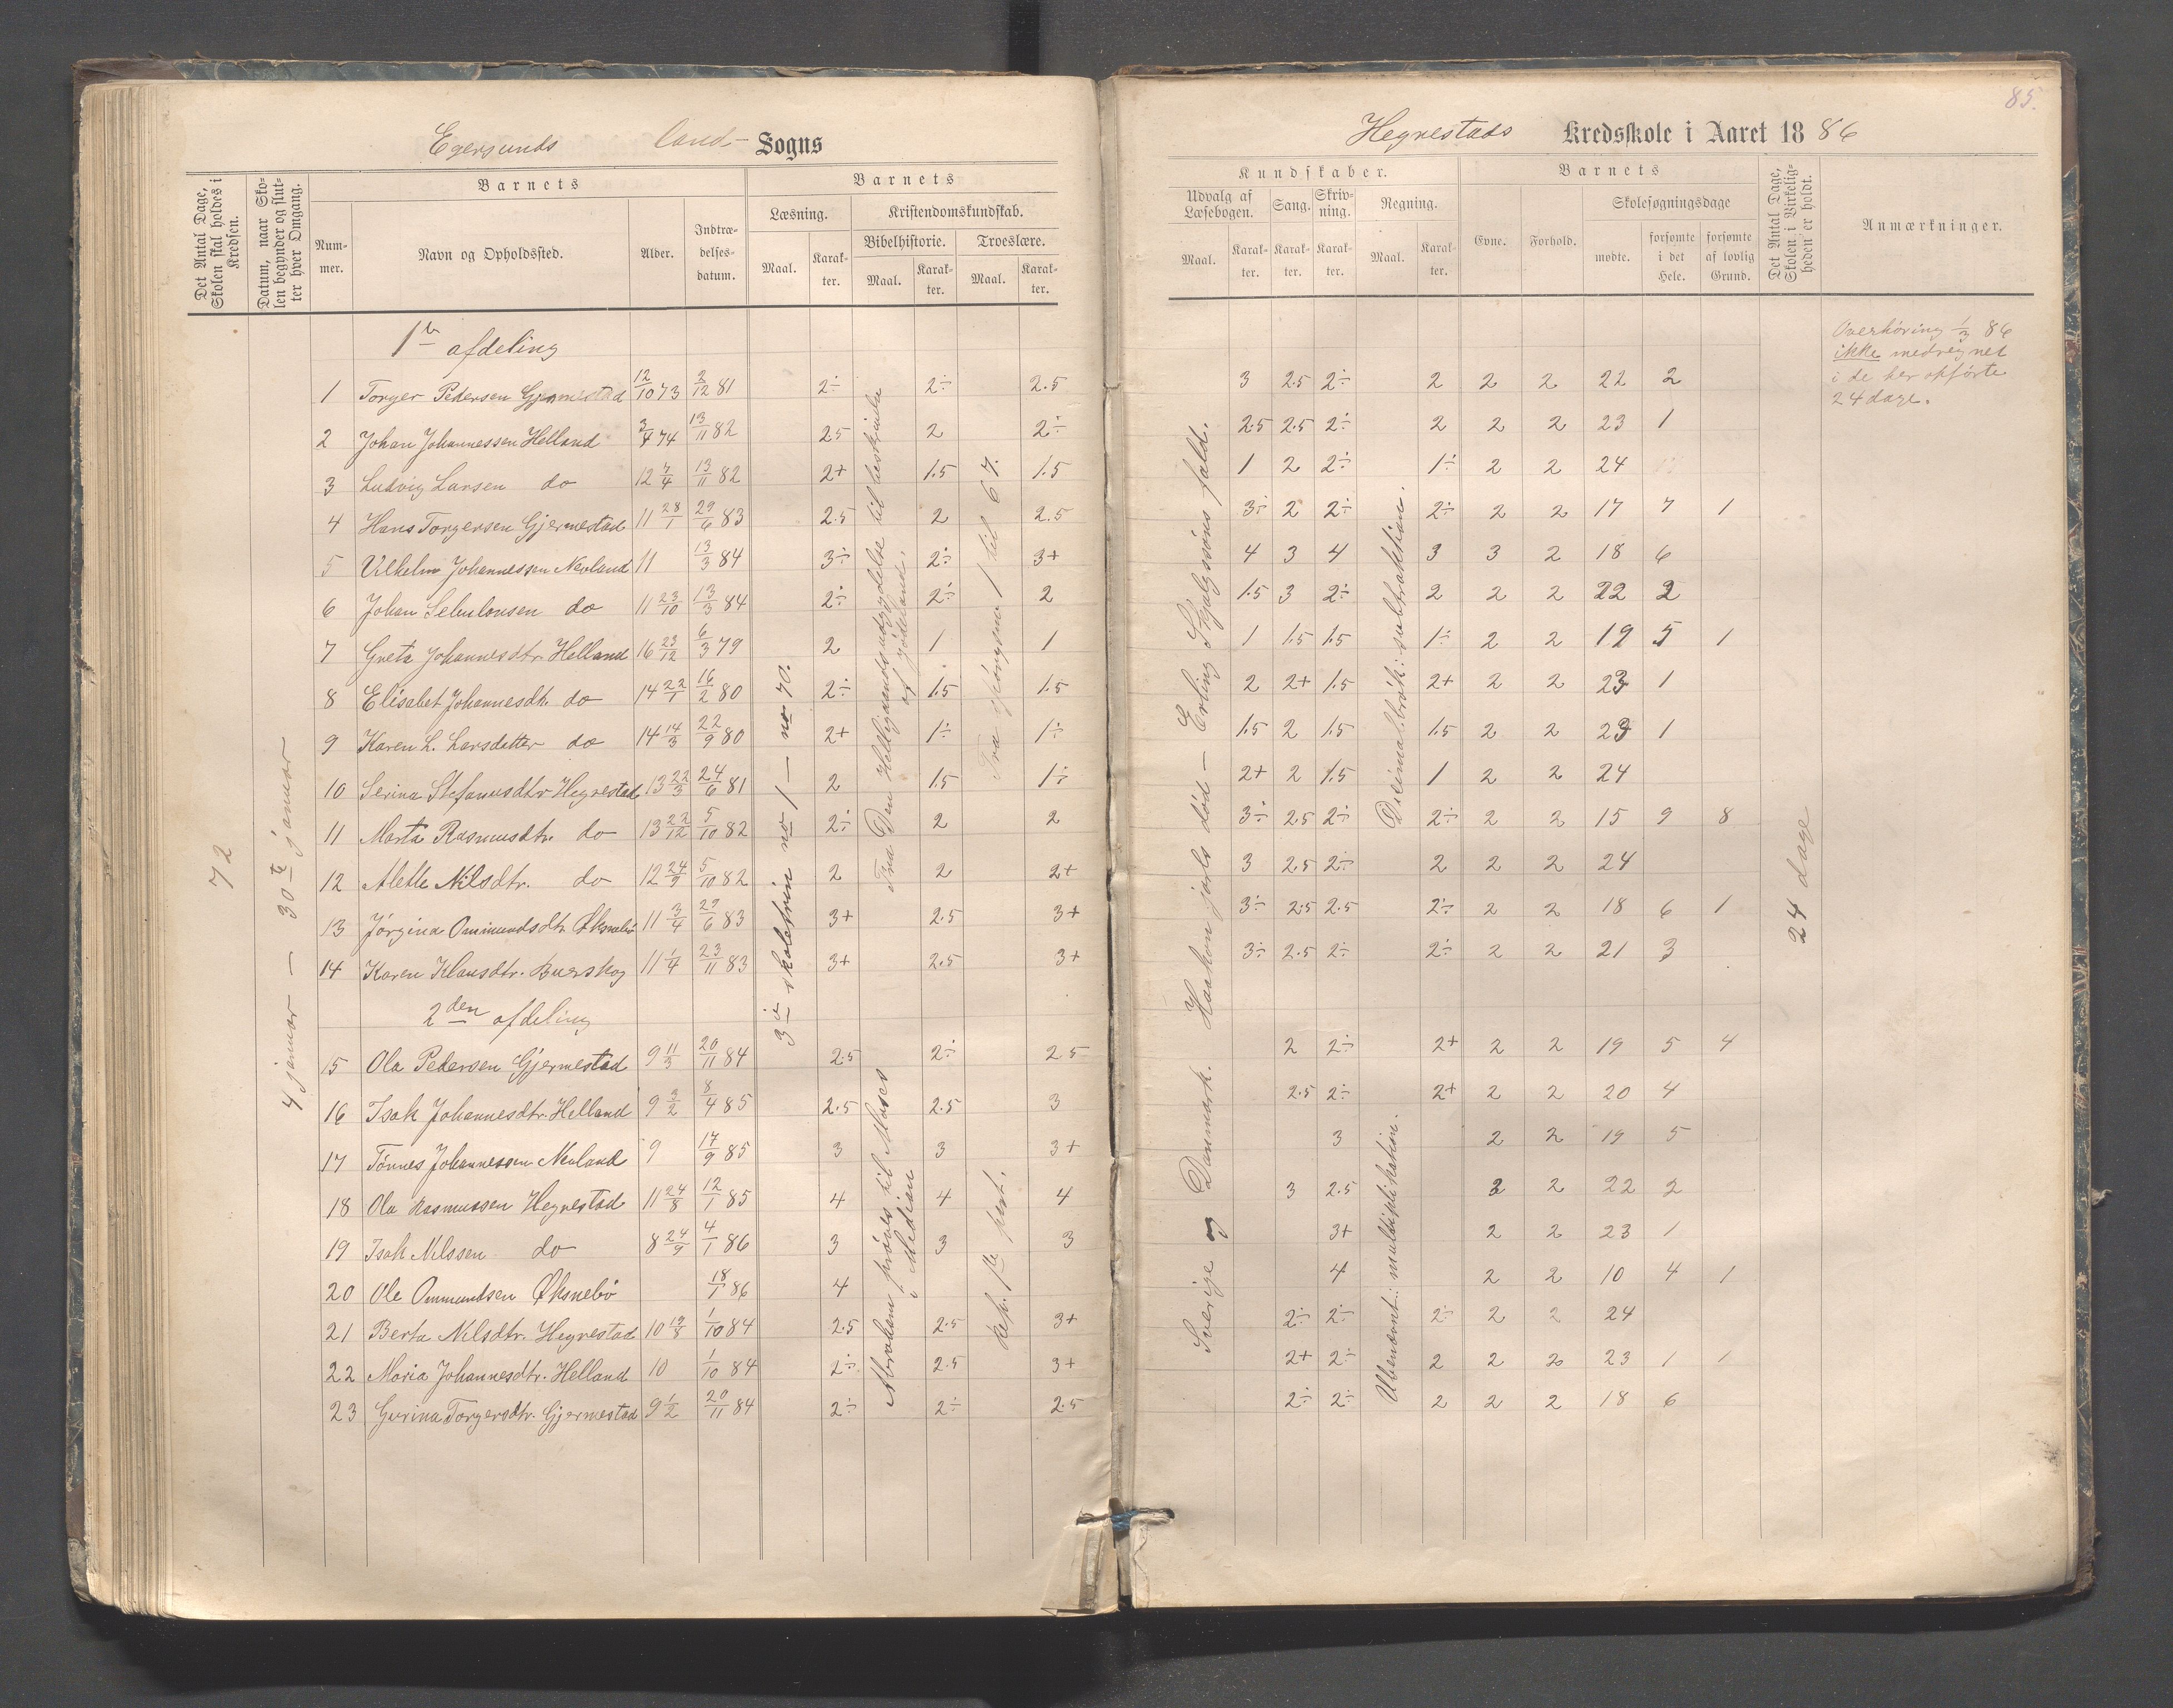 85.
Egersunds land- Sogns
Hegrestads Kredsskole i Aaret 1886
Det Antal Dage, Skolen skal holdes i Kredsen.
Datum, naar Skolen begynder og slutter hver Omgang.
Barnets
Nummer.
Navn og Opholdssted.
Alder.
Indtrædelsesdatum.
Barnets
Læsning.
Kristendomskundskab.
Bibelhistorie.
Troeslære.
Maal. Karakter. Maal. Karakter. Maal. Karakter.
Kundskaber.
Udvalg af Læsebogen. Sang. Skrivning. Regning.
Maal. Karakter. Karakter. Karakter. Maal. Karakter.
Barnets
Evne. Forhold.
Skolesøgningsdage
mødte. forsømte i det Hele. forsømte af lovlig Grund.
Det Antal Dage, Skolen i Virkeligheden er holdt.
Anmærkninger.
72
4 januar — 30te januar
3ie skoletrin no 1 — no 70.
Fra Den Helligaands udgydelse til
Fra spörgsm 1 til 67.
Haakon jarls död — Erling Skjalgssöns fald.
Decimalbrök: subtraktion.
24 dage
Overhöring 1/3 86
ikke medregnet
i de her opförte
24 dage.
1te afdeling
1 Torger Pedersen Gjermestad 12/10 73 2/12 81 2÷ 2÷ 2.5 3 2.5 2÷ 2 2 2 22 2
2 Johan Johannessen Helland 3/4 74 13/11 82 2.5 2 2÷ 2.5 2.5 2÷ 2 2 2 23 1
3 Ludvig Larsen do 12 7/4 13/11 82 2+ 1.5 1.5 1 2 2÷ 1÷ 2 2 24
4 Hans Torgersen Gjermestad 11 28/1 29/6 83 2.5 2 2.5 3÷ 2 2÷ 2÷ 2 2 17 7 1
5 Vilhelm Johannessen Nevland 11 13/3 84 3÷ 2÷ 3+ 4 3 4 3 3 2 18 6
6 Johan Sebulonsen do 11 23/10 13/3 84 2÷ 2÷ 2 1.5 3 2÷ 2 2 2 22 2
7 Greta Johannesdtr. Helland 16 23/12 6/3 79 2 1 1 1 1.5 1.5 1÷ 2 2 19 5 1
8 Elisabet Johannesdtr. do 14 22/1 16/2 80 2÷ 1.5 1.5 2 2+ 1.5 2+ 2 2 23 1
9 Karen L. Larsdatter do 14 14/3 22/9 80 2+ 1÷ 1÷ 1.5 2 1.5 1.5 2 2 23 1
10 Serina Stefanusdtr Hegrestad 13 22/3 24/6 81 2 1.5 1÷ 2+ 2 1.5 1 2 2 24
11 Marta Rasmusdtr. do 13 22/12 5/10 82 2÷ 2 2 3÷ 2.5 2÷ 2÷ 2 2 15 9 8
12 Alette Nilsdtr. do 12 24/9 5/10 82 2 2 2+ 3 2.5 2÷ 2 2 2 24
13 Jörgina Ommundsdtr. Øksnebö 11 3/4 29/6 83 3+ 2.5 3+ 3÷ 2.5 2.5 2÷ 2 2 18 6 1
14 Karen Klausdtr. Buerskog 11 1/4 23/11 83 3+ 2.5 3+ 3÷ 2.5 2÷ 2÷ 2 2 21 3
2den afdeling
Abraham pröves til Moses i Median
Rep. 1ste part.
Sverige og Danmark.
Ubenævnt: multiplikation.
15 Ola Pedersen Gjermestad 9 11/3 20/11 84 2.5 2÷ 2.5 2 2÷ 2+ 2 2 19 5 4
16 Isak Johannesdtr. Helland 9 3/2 8/4 85 2.5 2.5 3 2.5 2÷ 2+ 2 2 20 4
17 Tönnes Johannessen Nevland 9 17/9 85 3 3 3+ 3 2 2 19 5
18 Ola Rasmussen Hegrestad 11 24/8 12/1 85 4 4 4 3 2.5 3 2 22 2
19 Isak Nilssen do 8 24/9 4/1 86 3 3 3 3+ 2 2 23 1
20 Ole Ommundsen Øksnebö 18/1 86 4 4 2 2 10 4 1
21 Berta Nilsdtr. Hegrestad 10 19/8 1/10 84 2.5 2.5 3+ 2÷ 2÷ 2÷ 2 2 24
22 Maria Johannesdtr. Helland 10 1/10 84 2÷ 2.5 3+ 2+ 2÷ 2 2 2 23 1 1
23 Gurina Torgersdtr. Gjermestad 9 1/2 20/11 84 2÷ 2÷ 2.5 2÷ 2÷ 2 2 2 18 6